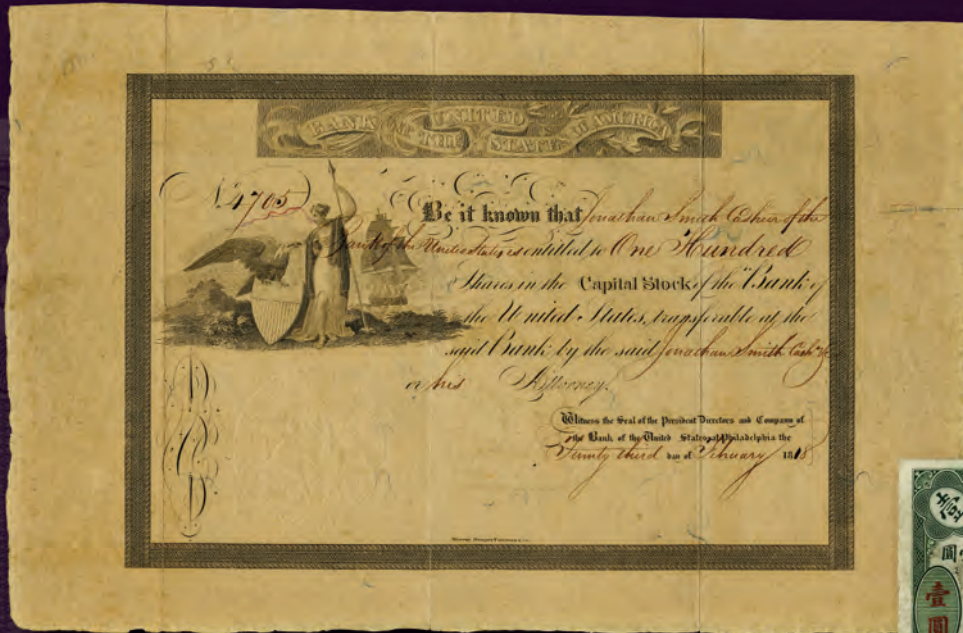 BANK OF THE UNITED STATES OF AMERICA
No 4705
Be it known that Jonathan Smith Cashier of the
Bank of the United States is entitled to One Hundred
Shares in the Capital Stock of the Bank of
the United States, transferable at the
said Bank by the said Jonathan Smith Cash
or his Attorney.
Witness the Seal of the President Directors and Company of
the Bank of the United States at Philadelphia the
Twenty third day of February 1818
壹
圓